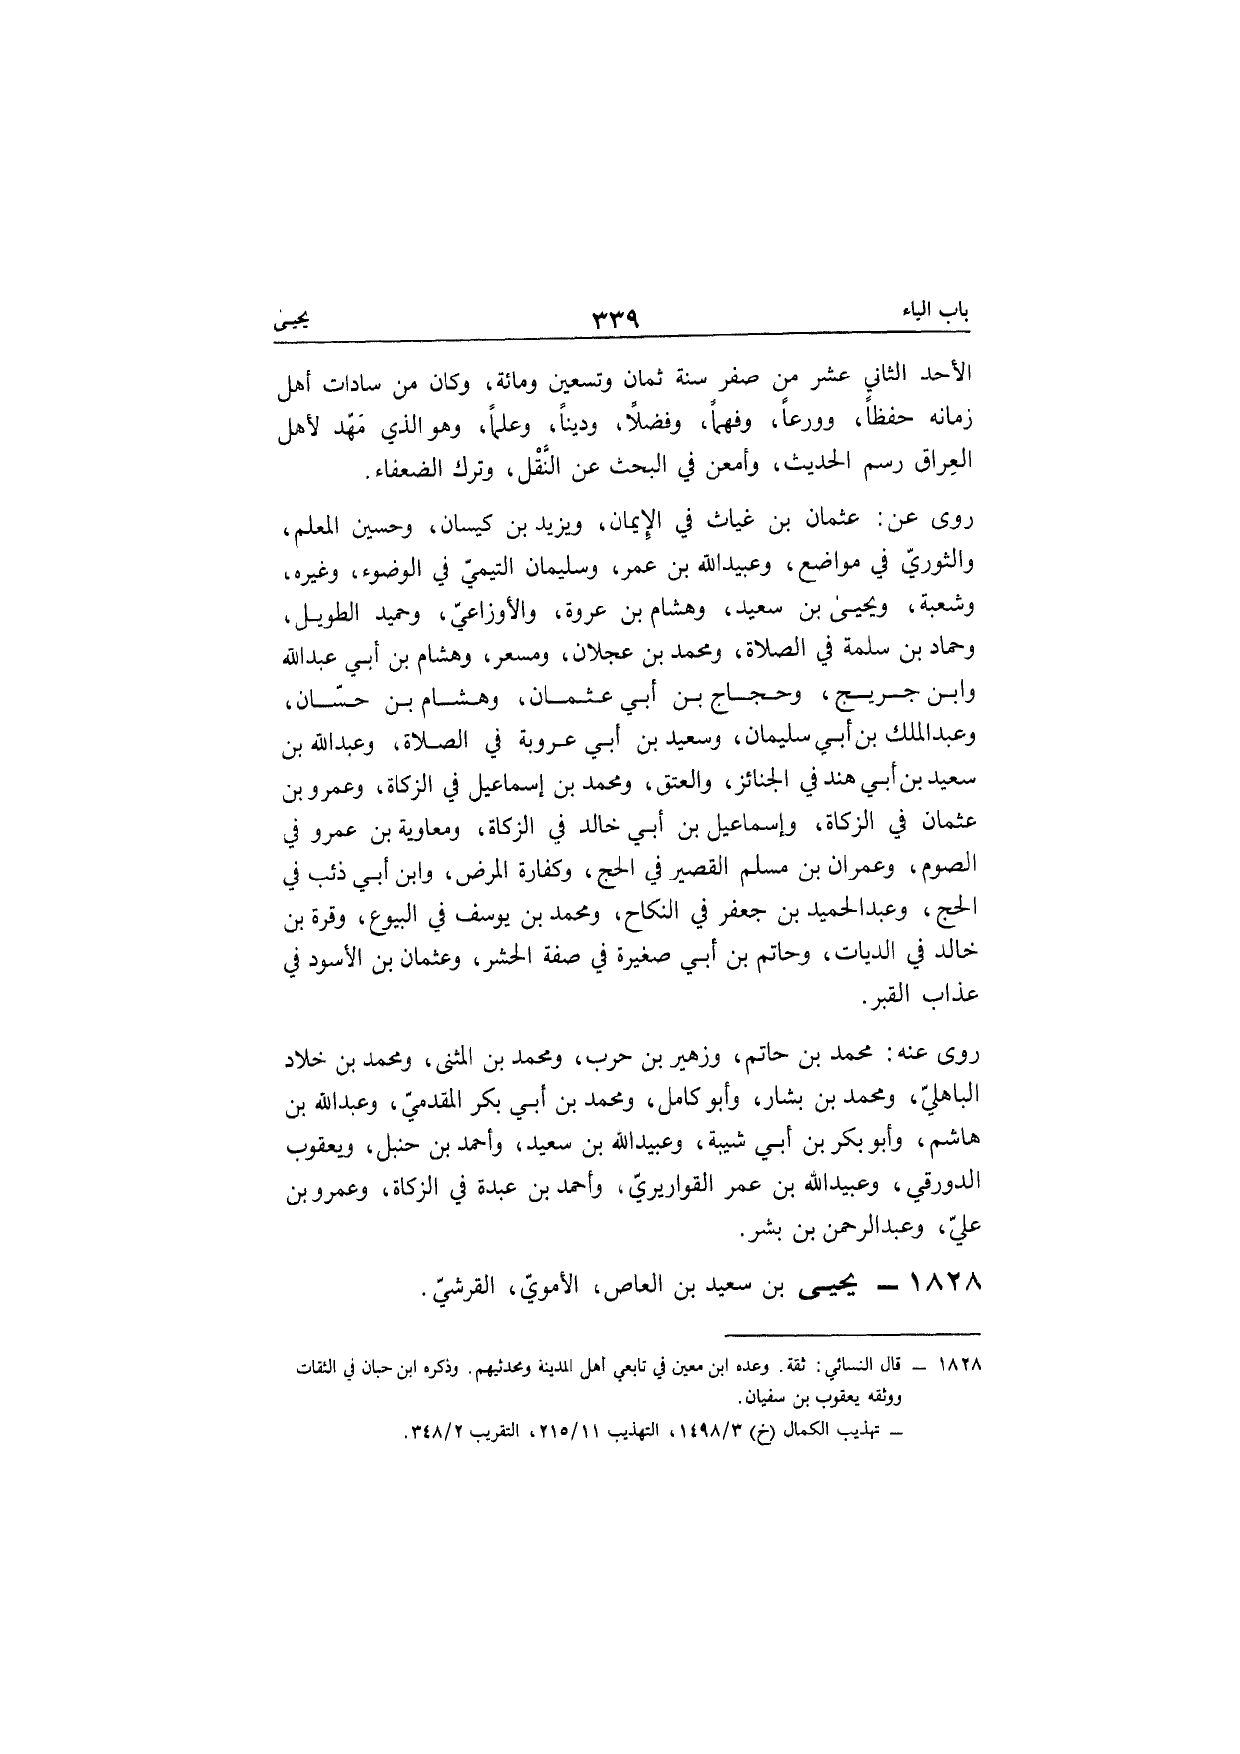 باب الياء ٣٣٩ يحيىٰ
الأحد الثاني عشر من صفر سنة ثمان وتسعين ومائة، وكان من سادات أهل
زمانه حفظاً، وورعاً، وفهماً، وفضلاً، وديناً، وعلماً، وهو الذي مَهّد لأهل
العِراق رسم الحديث، وأمعن في البحث عن النَّقْل، وترك الضعفاء.
روى عن: عثمان بن غياث في الإِيمان، ويزيد بن كيسان، وحسين المعلم،
والثوريّ في مواضع، وعبيدالله بن عمر، وسليمان التيميّ في الوضوء، وغيره،
وشعبة، ويحيىٰ بن سعيد، وهشام بن عروة، والأوزاعيّ، وحميد الطويل،
وحماد بن سلمة في الصلاة، ومحمد بن عجلان، ومسعر، وهشام بن أبي عبدالله
وابن جريج، وحجاج بن أبي عثمان، وهشام بن حسّان،
وعبدالملك بن أبي سليمان، وسعيد بن أبي عروبة في الصلاة، وعبدالله بن
سعيد بن أبي هند في الجنائز، والعتق، ومحمد بن إسماعيل في الزكاة، وعمرو بن
عثمان في الزكاة، وإسماعيل بن أبي خالد في الزكاة، ومعاوية بن عمرو في
الصوم، وعمران بن مسلم القصير في الحج، وكفارة المرض، وابن أبي ذئب في
الحج، وعبدالحميد بن جعفر في النكاح، ومحمد بن يوسف في البيوع، وقرة بن
خالد في الديات، وحاتم بن أبي صغيرة في صفة الحشر، وعثمان بن الأسود في
عذاب القبر.
روى عنه: محمد بن حاتم، وزهير بن حرب، ومحمد بن المثنى، ومحمد بن خلاد
الباهليّ، ومحمد بن بشار، وأبو كامل، ومحمد بن أبي بكر المقدميّ، وعبدالله بن
هاشم، وأبو بكر بن أبي شيبة، وعبيدالله بن سعيد، وأحمد بن حنبل، ويعقوب
الدورقي، وعبيدالله بن عمر القواريريّ، وأحمد بن عبدة في الزكاة، وعمرو بن
عليّ، وعبدالرحمن بن بشر.
١٨٢٨ ــ يحيى بن سعيد بن العاص، الأمويّ، القرشيّ.
١٨٢٨ ــ قال النسائي: ثقة. وعده ابن معين في تابعي أهل المدينة ومحدثيهم. وذكره ابن حبان في الثقات
ووثقه يعقوب بن سفيان.
ــ تهذيب الكمال (خ) ١٤٩٨/٣، التهذيب ٢١٥/١١، التقريب ٣٤٨/٢.